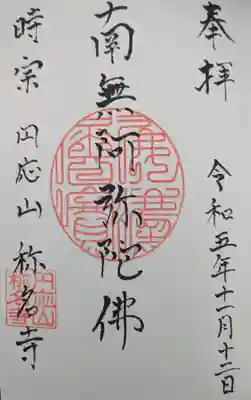 奉拝
令和五年十一月十二日
南無阿弥陀佛
時宗 円応山 称名寺